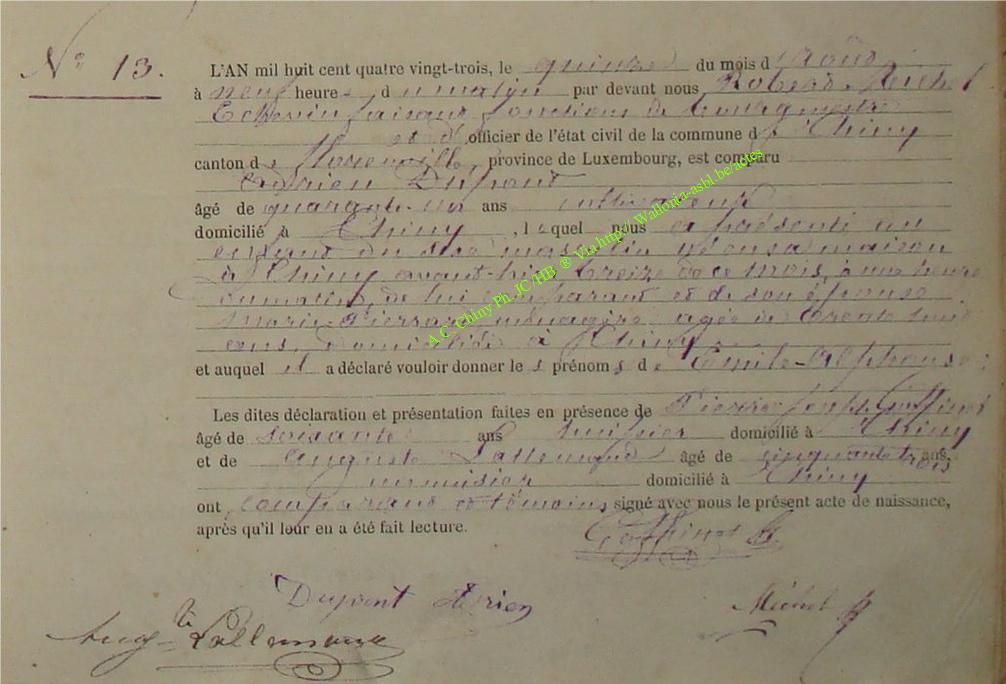 N° 13.
L'AN mil huit cent quatre vingt-trois, le quinze du mois d'Août
à neuf heures du matin par devant nous, Robert Michel
Echevin faisant fonctions de bourgmestre
et d'officier de l'état civil de la commune de Chiny
canton de Florenville, province de Luxembourg, est comparu
Adrien Dupont
âgé de quarante un ans cultivateur
domicilié à Chiny, lequel nous a présenté un
enfant du sexe masculin né en sa maison
à Chiny avant-hier treize de ce mois, à une heure
du matin, de lui comparant et de son épouse
Marie Pierrard, ménagère, agée de trente huit
ans, domiciliée à Chiny
et auquel il a déclaré vouloir donner les prénoms de Emile-Alphonse;
Les dites déclaration et présentation faites en présence de Pierre Joseph Goffinet
âgé de soixante ans huissier domicilié à Chiny
et de Auguste Lallemand âgé de cinquante trois ans,
menuisier domicilié à Chiny
ont, comparant et témoins, signé avec nous le présent acte de naissance,
après qu'il leur en a été fait lecture.
Goffinet
Dupont Adrien
Michel R
Aug te Lallemand
A.C. Chiny Ph. JC/HB ® Via http// Wallonia-asbl.be/actes